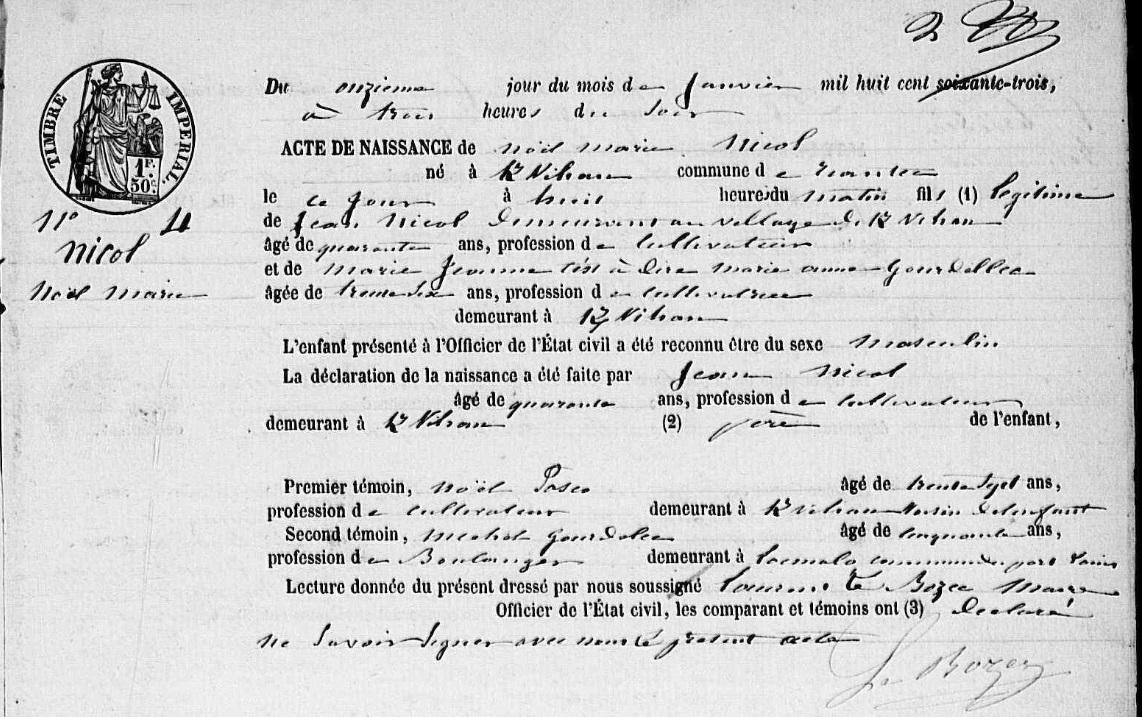 2
TIMBRE IMPERIAL.
1F.
50c.
Du onzieme jour du mois de Janvier mil huit cent soixante-trois,
à trois heures du Soir
ACTE DE NAISSANCE de Noël Marie Nicol
né à Kr Vihan commune de
le ce Jour à huit heures du matin fils (1) légitime
N° 4
de Jean Nicol demeurant au village de Kr Vihan
Nicol
âgé de quarante ans, profession de Cultivateur
et de Marie Jeanne c'est à dire Marie anne Gourdellec
Noël Marie
âgée de trente Six ans, profession de cultivatrice
demeurant à Kr Vihan
L'enfant présenté à l'Officier de l'État civil a été reconnu être du sexe Masculin
La déclaration de la naissance a été faite par Jean Nicol
âgé de quarante ans, profession de cultivateur
demeurant à Kr Vihan (2) père de l'enfant,
Premier témoin, Noël âgé de trente Sept ans,
profession de cultivateur demeurant à Kr vihan Voisin de l'enfant
Second témoin, Michel Gourdelec âgé de cinquante ans,
profession de Boulanger demeurant à Locmalo commune de port Louis
Lecture donnée du présent dressé par nous soussigné Le Bozec Maire
Officier de l'État civil, les comparant et témoins ont (3) Déclaré
ne Savoir Signer avec nous le présent acte
Le Bozec